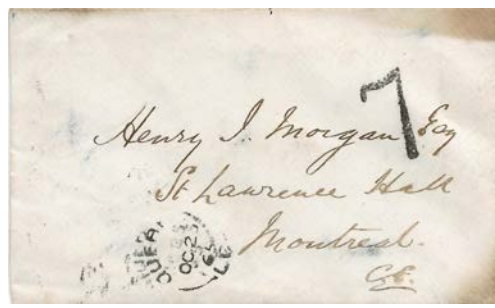 7
Henry J. Morgan Esq
St Lawrence Hall
Montreal.
C.E.
OC 25